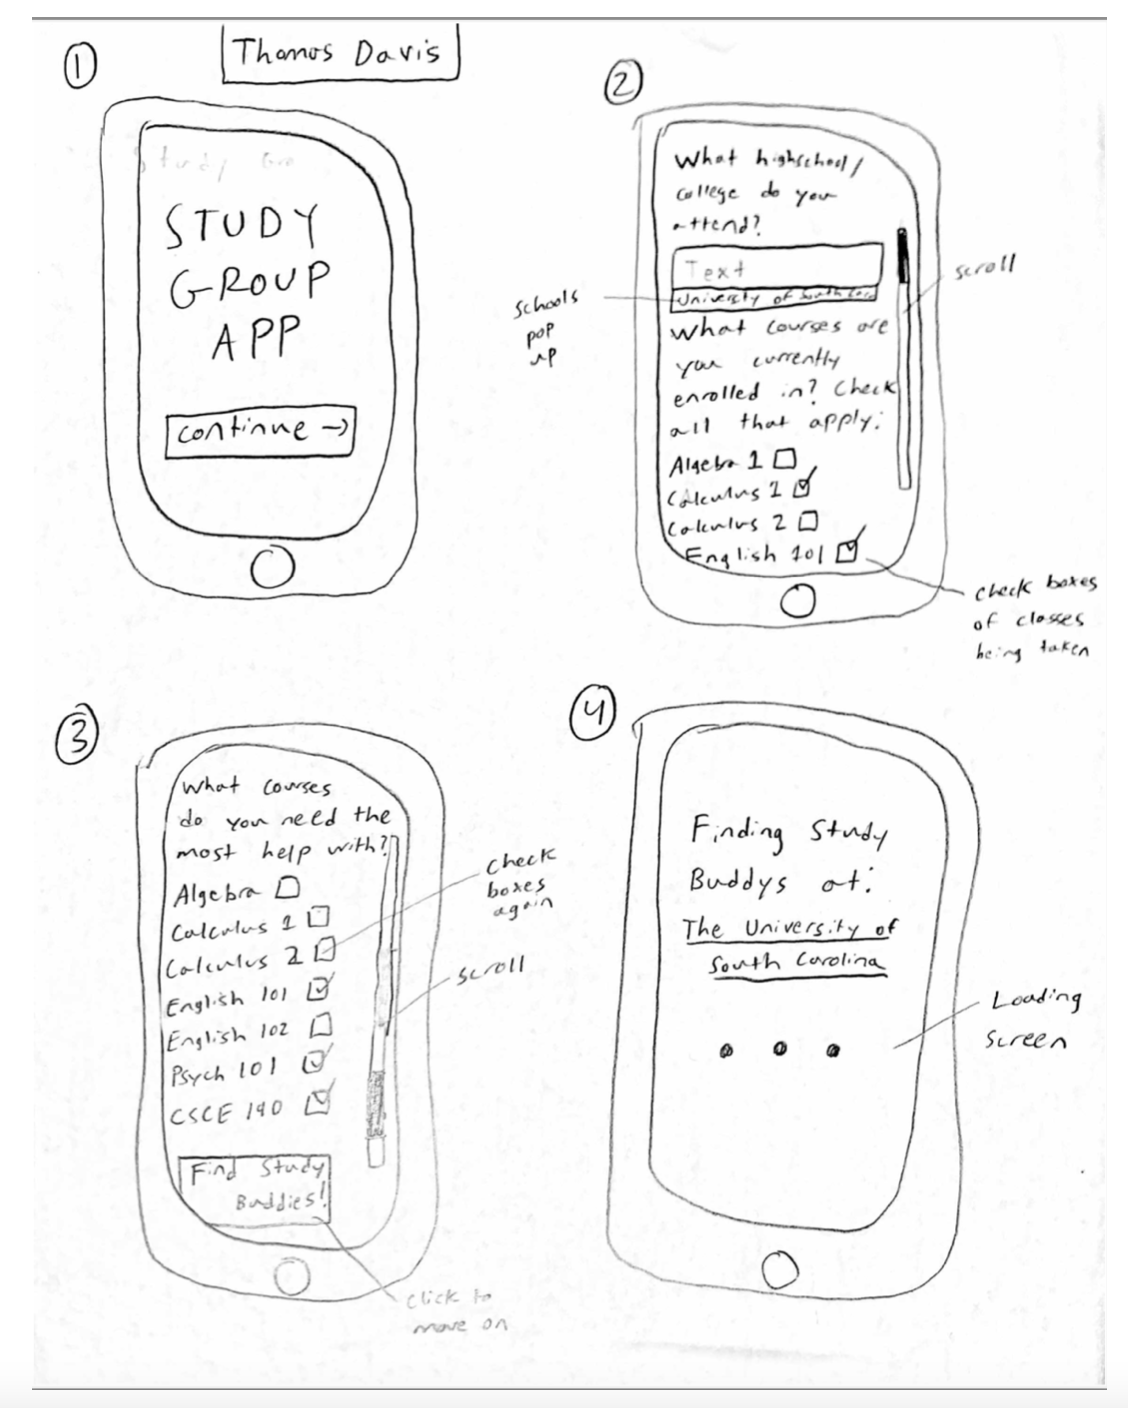 Thomas Davis
①
Study Gro
STUDY
GROUP
APP
continue →
②
What highschool/
college do you
attend?
Text
University of South Caro
What courses are
you currently
enrolled in? Check
all that apply:
Algebra 1
Calculus 1
Calculus 2
English 101
schools
pop
up
scroll
check boxes
of classes
being taken
③
What courses
do you need the
most help with?
Algebra
Calculus 1
Calculus 2
English 101
English 102
Psych 101
CSCE 190
Find Study
Buddies!
check
boxes
again
scroll
click to
move on
④
Finding Study
Buddys at:
The University of
South Carolina
Loading
screen